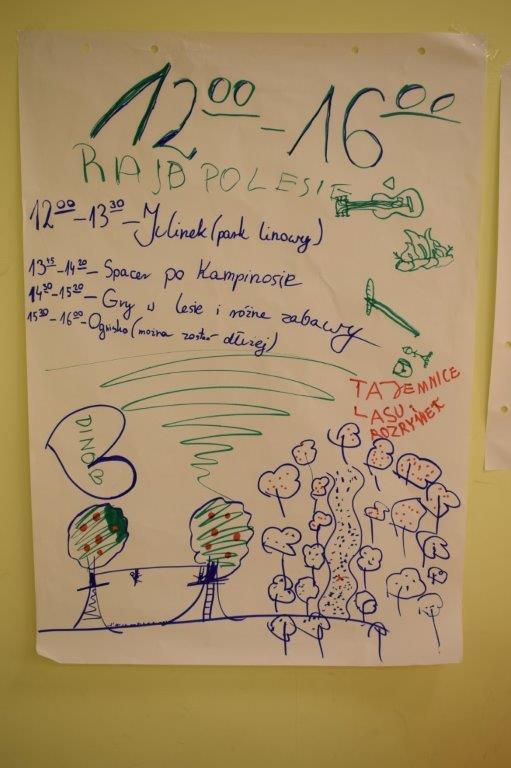 12⁰⁰ - 16⁰⁰
RAJD POLESIE
12⁰⁰ - 13³⁰ - Julinek (park linowy)
13⁴⁵ - 14²⁰ - Spacer po Kampinosie
14³⁰ - 15²⁰ - Gry w lesie i różne zabawy
15³⁰ - 16⁰⁰ - Ognisko (można zostać dłużej)
TAJEMNICE
LASU i
ROZRYWEK
DINO